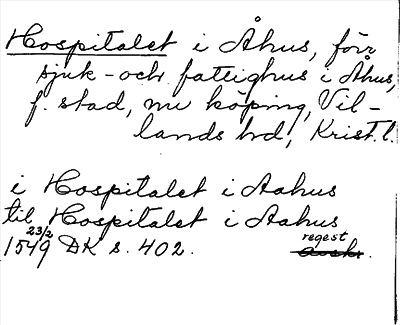 Hospitalet i Åhus, förr
sjuk- och fattighus i Åhus,
f. stad, nu köping, Vil-
lands hd, Krist. l.
i Hospitalet i Aahus
til Hospitalet i Aahus
23/2
1549 DK s. 402. regest
avskr.